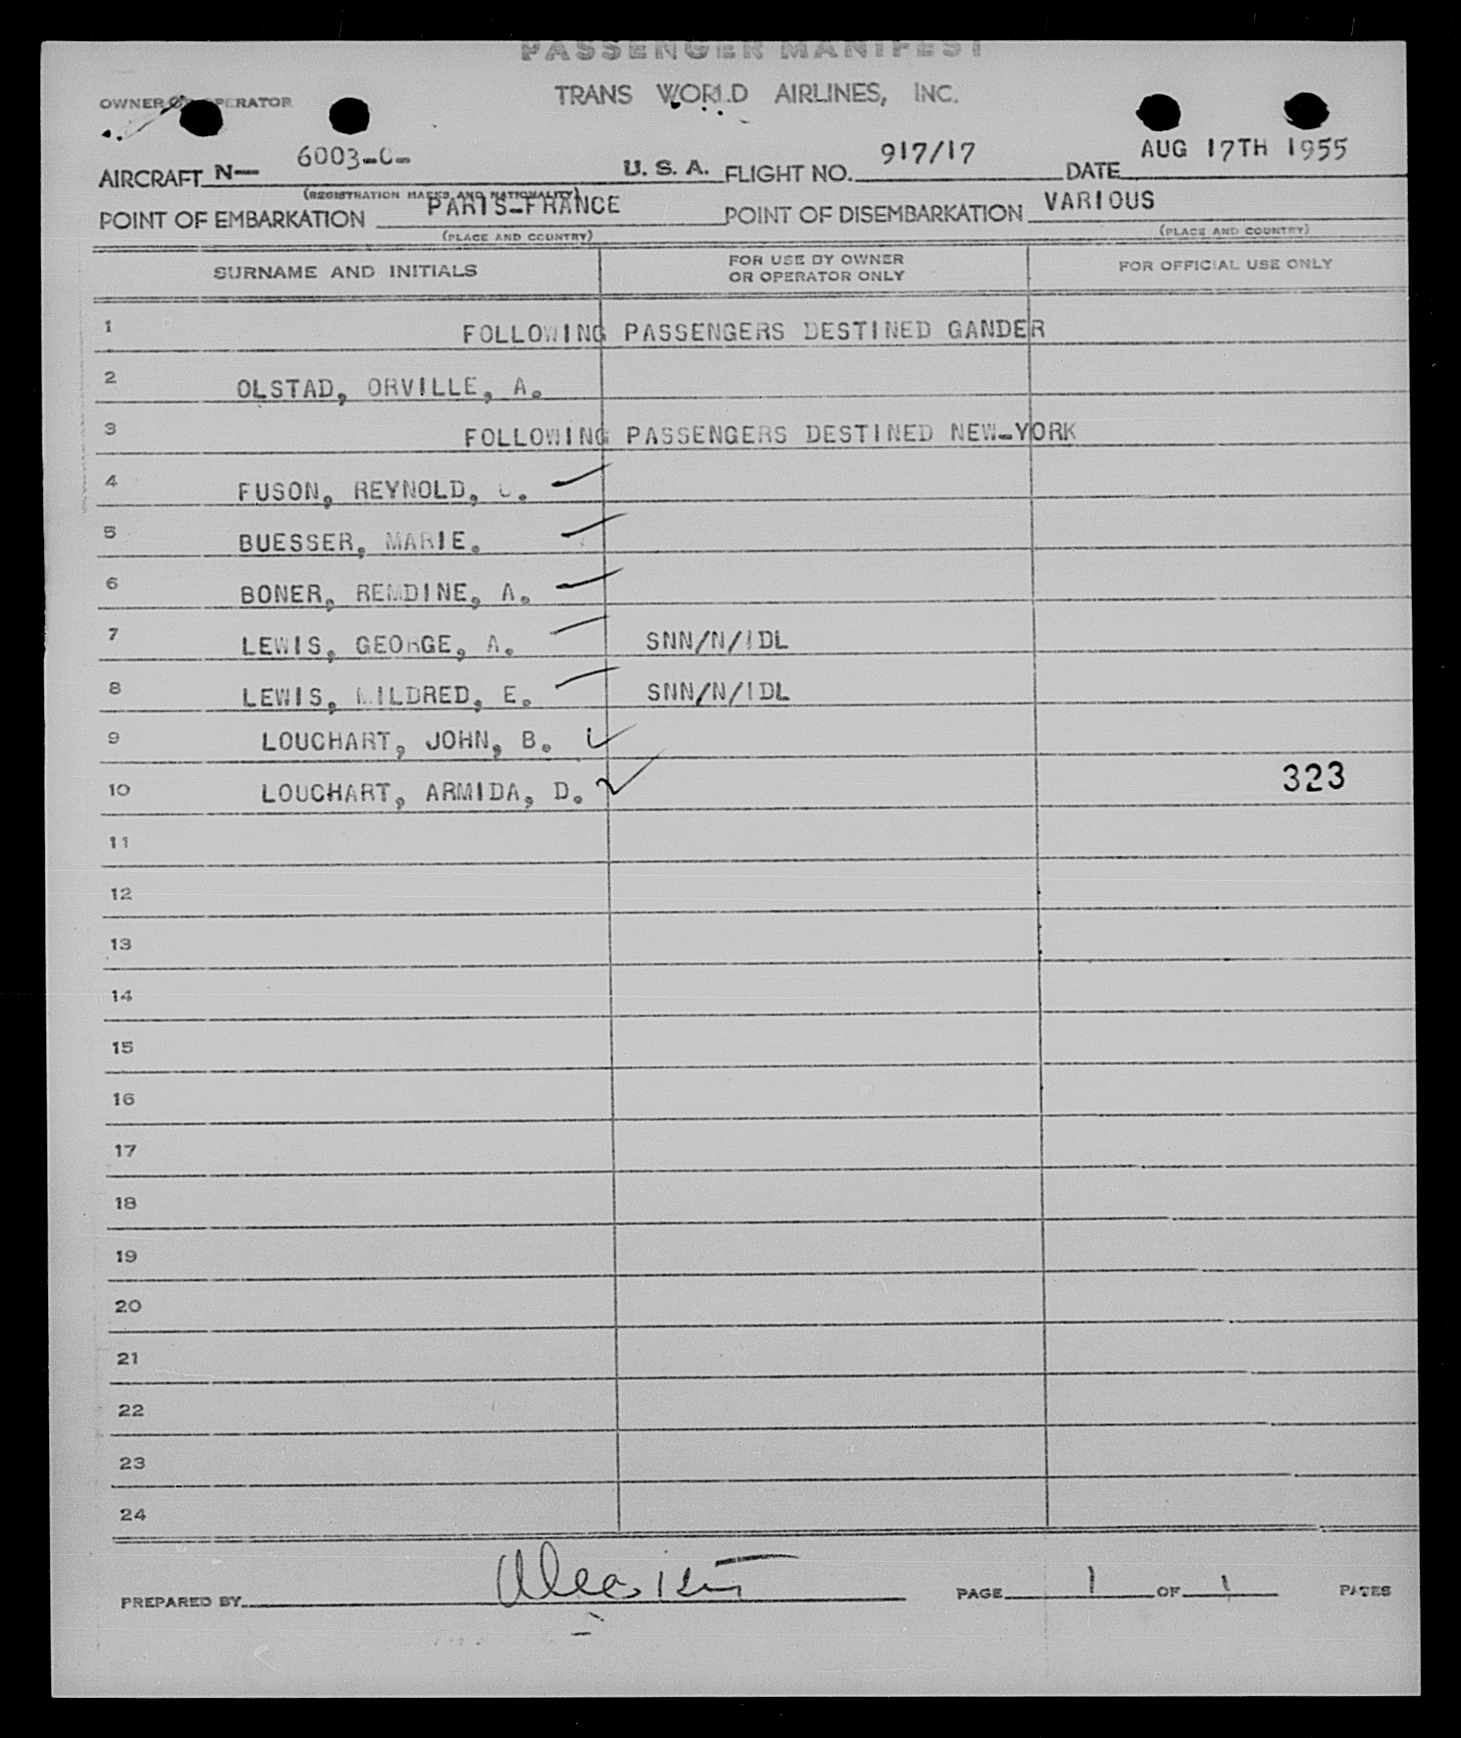 PASSENGER MANIFEST
OWNER OR OPERATOR TRANS WORLD AIRLINES, INC.
AIRCRAFT N— 6003-C- U. S. A. FLIGHT NO. 917/17 DATE AUG 17TH 1955
(REGISTRATION MARKS AND NATIONALITY)
POINT OF EMBARKATION PARIS-FRANCE POINT OF DISEMBARKATION VARIOUS
(PLACE AND COUNTRY) (PLACE AND COUNTRY)
SURNAME AND INITIALS FOR USE BY OWNER OR OPERATOR ONLY FOR OFFICIAL USE ONLY
1 FOLLOWING PASSENGERS DESTINED GANDER
2 OLSTAD, ORVILLE, A.
3 FOLLOWING PASSENGERS DESTINED NEW-YORK
4 FUSON, REYNOLD,
5 BUESSER, MARIE.
6 BONER, REMDINE, A.
7 LEWIS, GEORGE, A. SNN/N/IDL
8 LEWIS, MILDRED, E. SNN/N/IDL
9 LOUCHART, JOHN, B.
10 LOUCHART, ARMIDA, D. 323
11
12
13
14
15
16
17
18
19
20
21
22
23
24
PREPARED BY PAGE 1 OF 1 PAGES